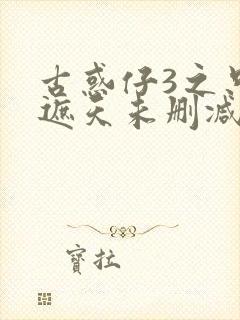 古惑仔3之只
遮天未删减
寳拉